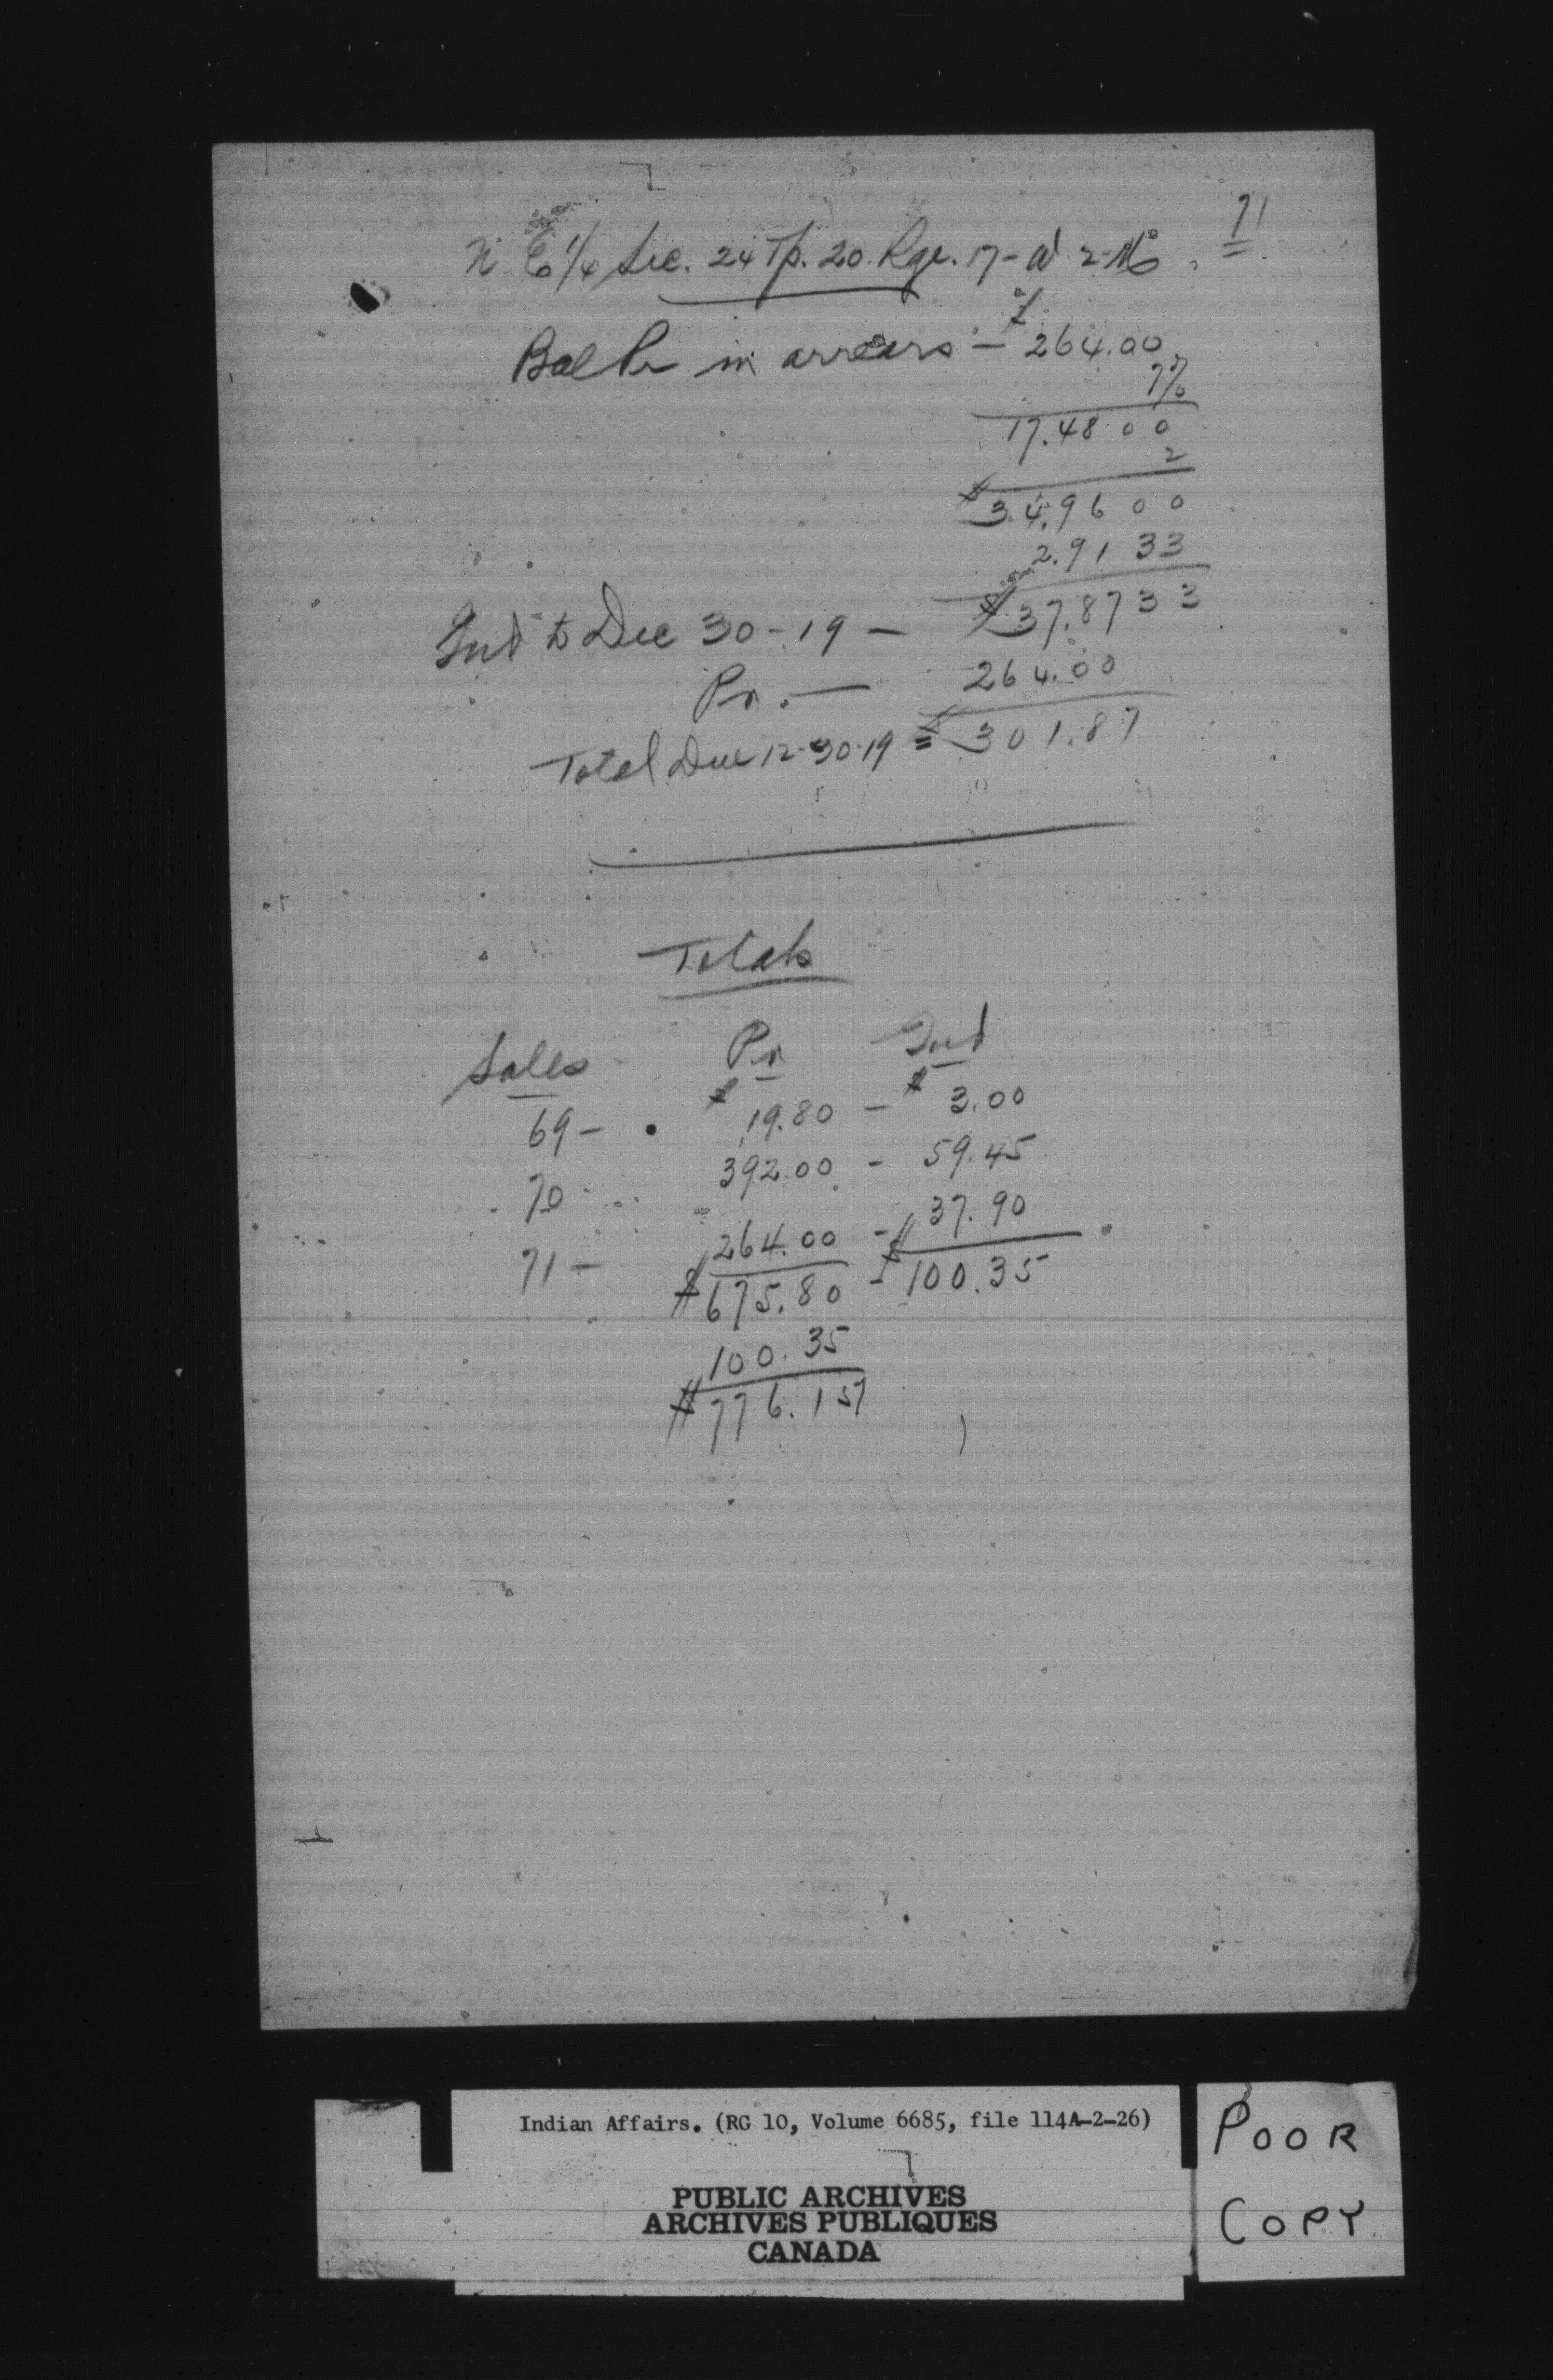 71
N. E 1/4 Sec. 24 Tp. 20. Rge. 17 - W 2 M.
Bal Pr in arrears - $264.00
7%
17.4800
2
$34.9600
2.9133
Int to Dec 30-19 - $37.8733
Pr. - 264.00
Total Due 12-30-19 = $301.87
Totals
Sales Pr Int
69 - $19.80 - $3.00
70 - 392.00 - 59.45
71 - 264.00 - 37.90
$675.80 - $100.35
100.35
$776.15
Indian Affairs. (RG 10, Volume 6685, file 114A-2-26)
PUBLIC ARCHIVES
ARCHIVES PUBLIQUES
CANADA
POOR
COPY